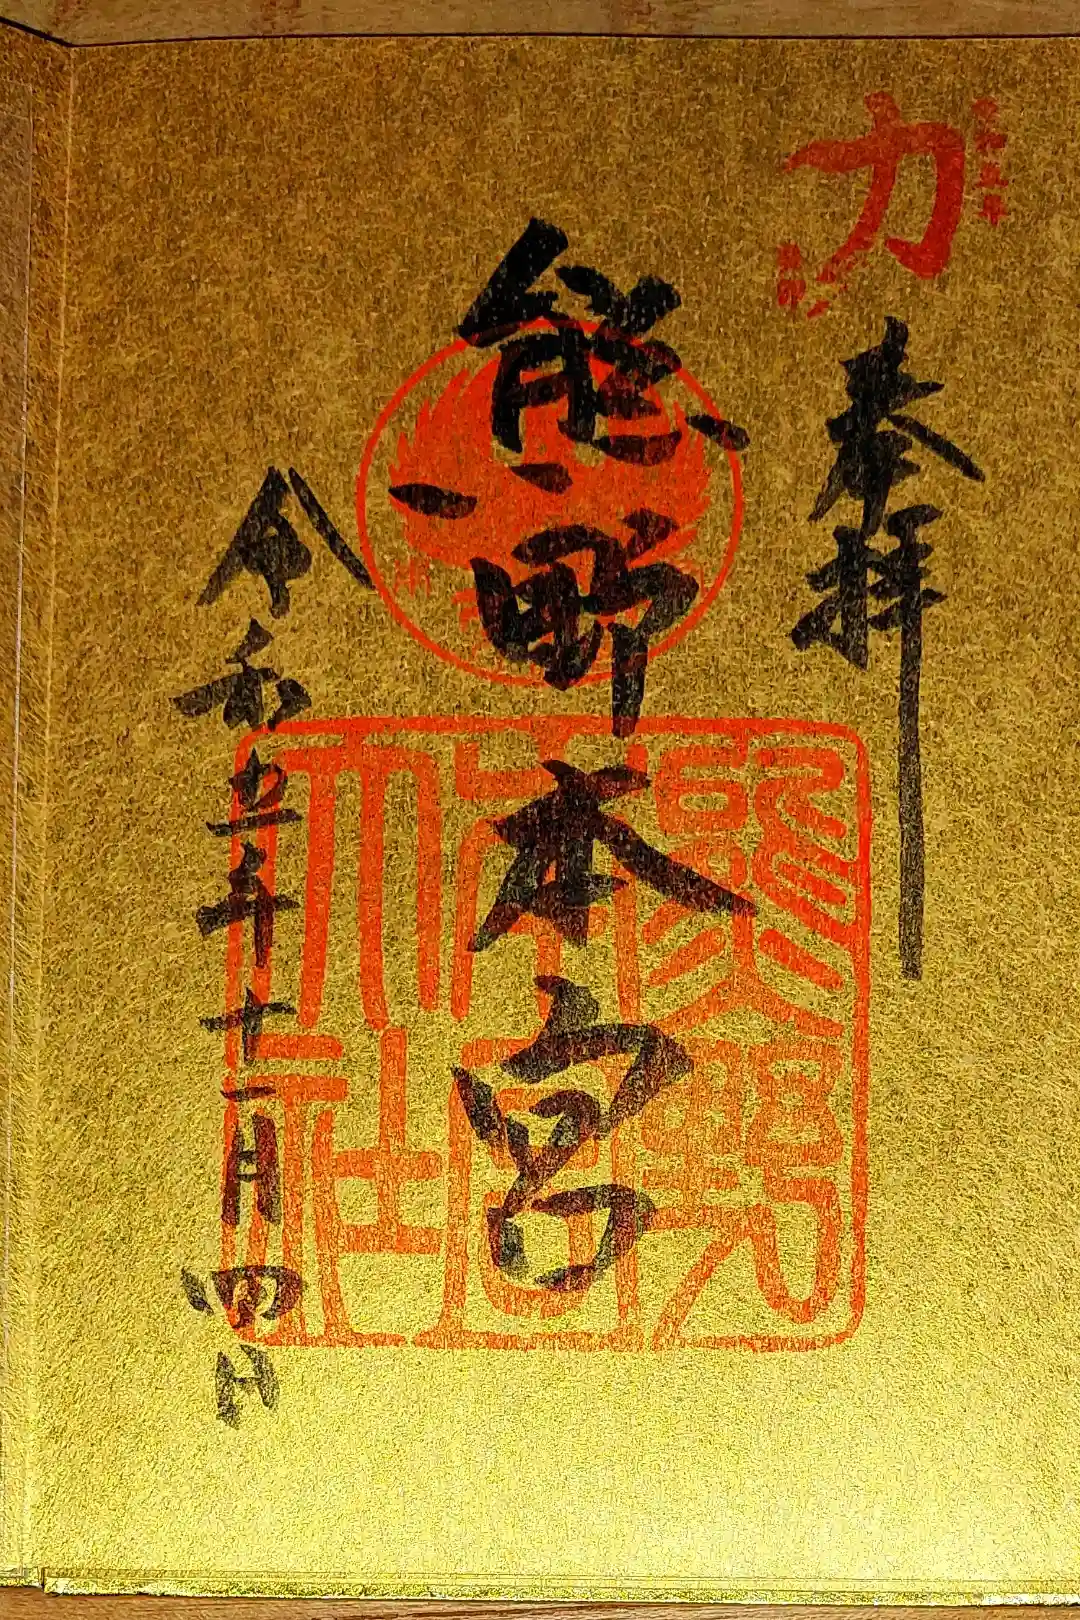 力
令和五年
奉拝
熊野本宮
熊野
本宮
大社
令和五年十一月四日